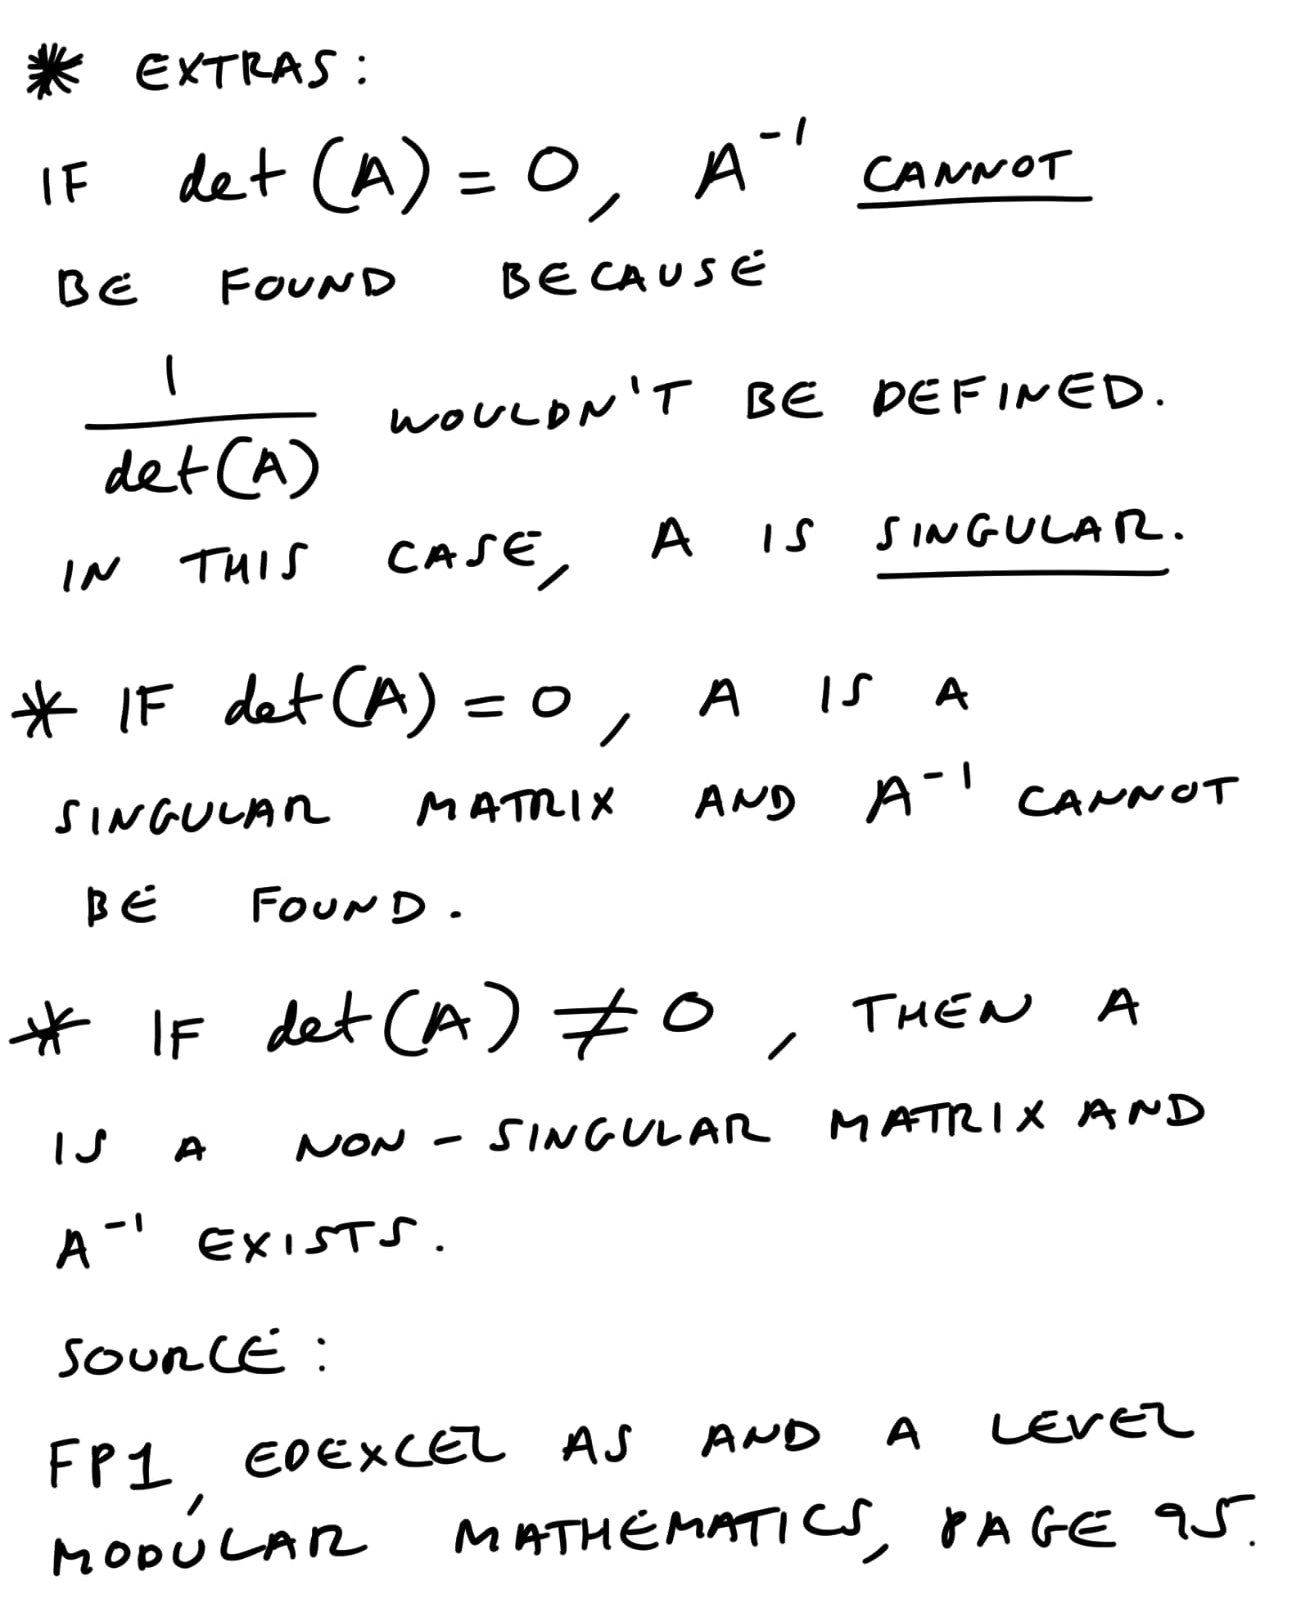 * EXTRAS:
IF det(A) = 0, A⁻¹ CANNOT
BE FOUND BECAUSE
1
det(A) WOULDN'T BE DEFINED.
IN THIS CASE, A IS SINGULAR.
* IF det(A) = 0, A IS A
SINGULAR MATRIX AND A⁻¹ CANNOT
BE FOUND.
* IF det(A) ≠ 0, THEN A
IS A NON-SINGULAR MATRIX AND
A⁻¹ EXISTS.
SOURCE:
FP1, EDEXCEL AS AND A LEVEL
MODULAR MATHEMATICS, PAGE 95.